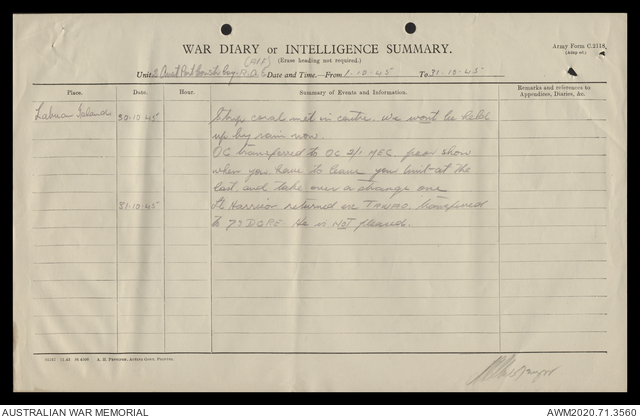 Army Form C.2118
WAR DIARY or INTELLIGENCE SUMMARY.
(Erase heading not required.)
(AIF)
Unit 2 Aust Port Date and Time.—From 1-10-45 To 31-10-45
Place. Date. Hour. Summary of Events and Information. Remarks and references to
Appendices, Diaries, &c.
Labuan Island 30-10-45 Strip coral met in centre. We wont be held
up by rain now.
OC transferred to OC 2/1 MEC. poor show
when you have to leave your unit at the
last and take over a strange one
31-10-45 Lt Harrison returned ex transferred
to 73 DCRE. He is NOT pleased.
AUSTRALIAN WAR MEMORIAL AWM2020.71.3560